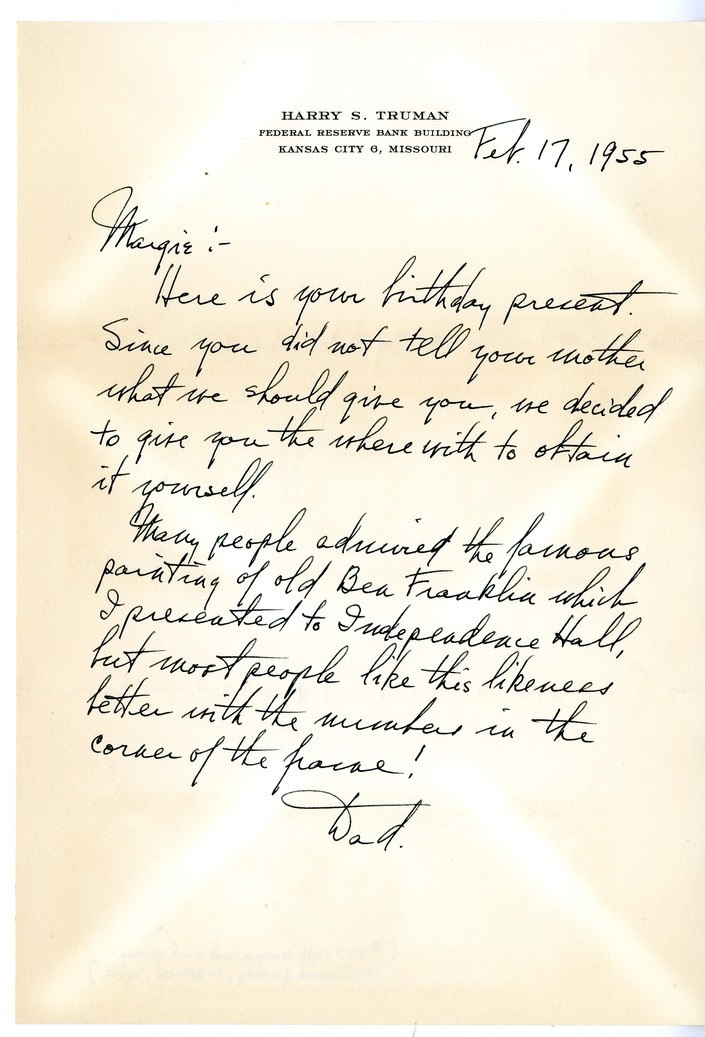 HARRY S. TRUMAN
FEDERAL RESERVE BANK BUILDING
KANSAS CITY 6, MISSOURI
Feb. 17, 1955
Margie:-
Here is your birthday present.
Since you did not tell your mother
what we should give you, we decided
to give you the where with to obtain
it yourself.
Many people admired the famous
painting of old Ben Franklin which
I presented to Independence Hall,
but most people like this likeness
better with the numbers in the
corner of the frame!
Dad.